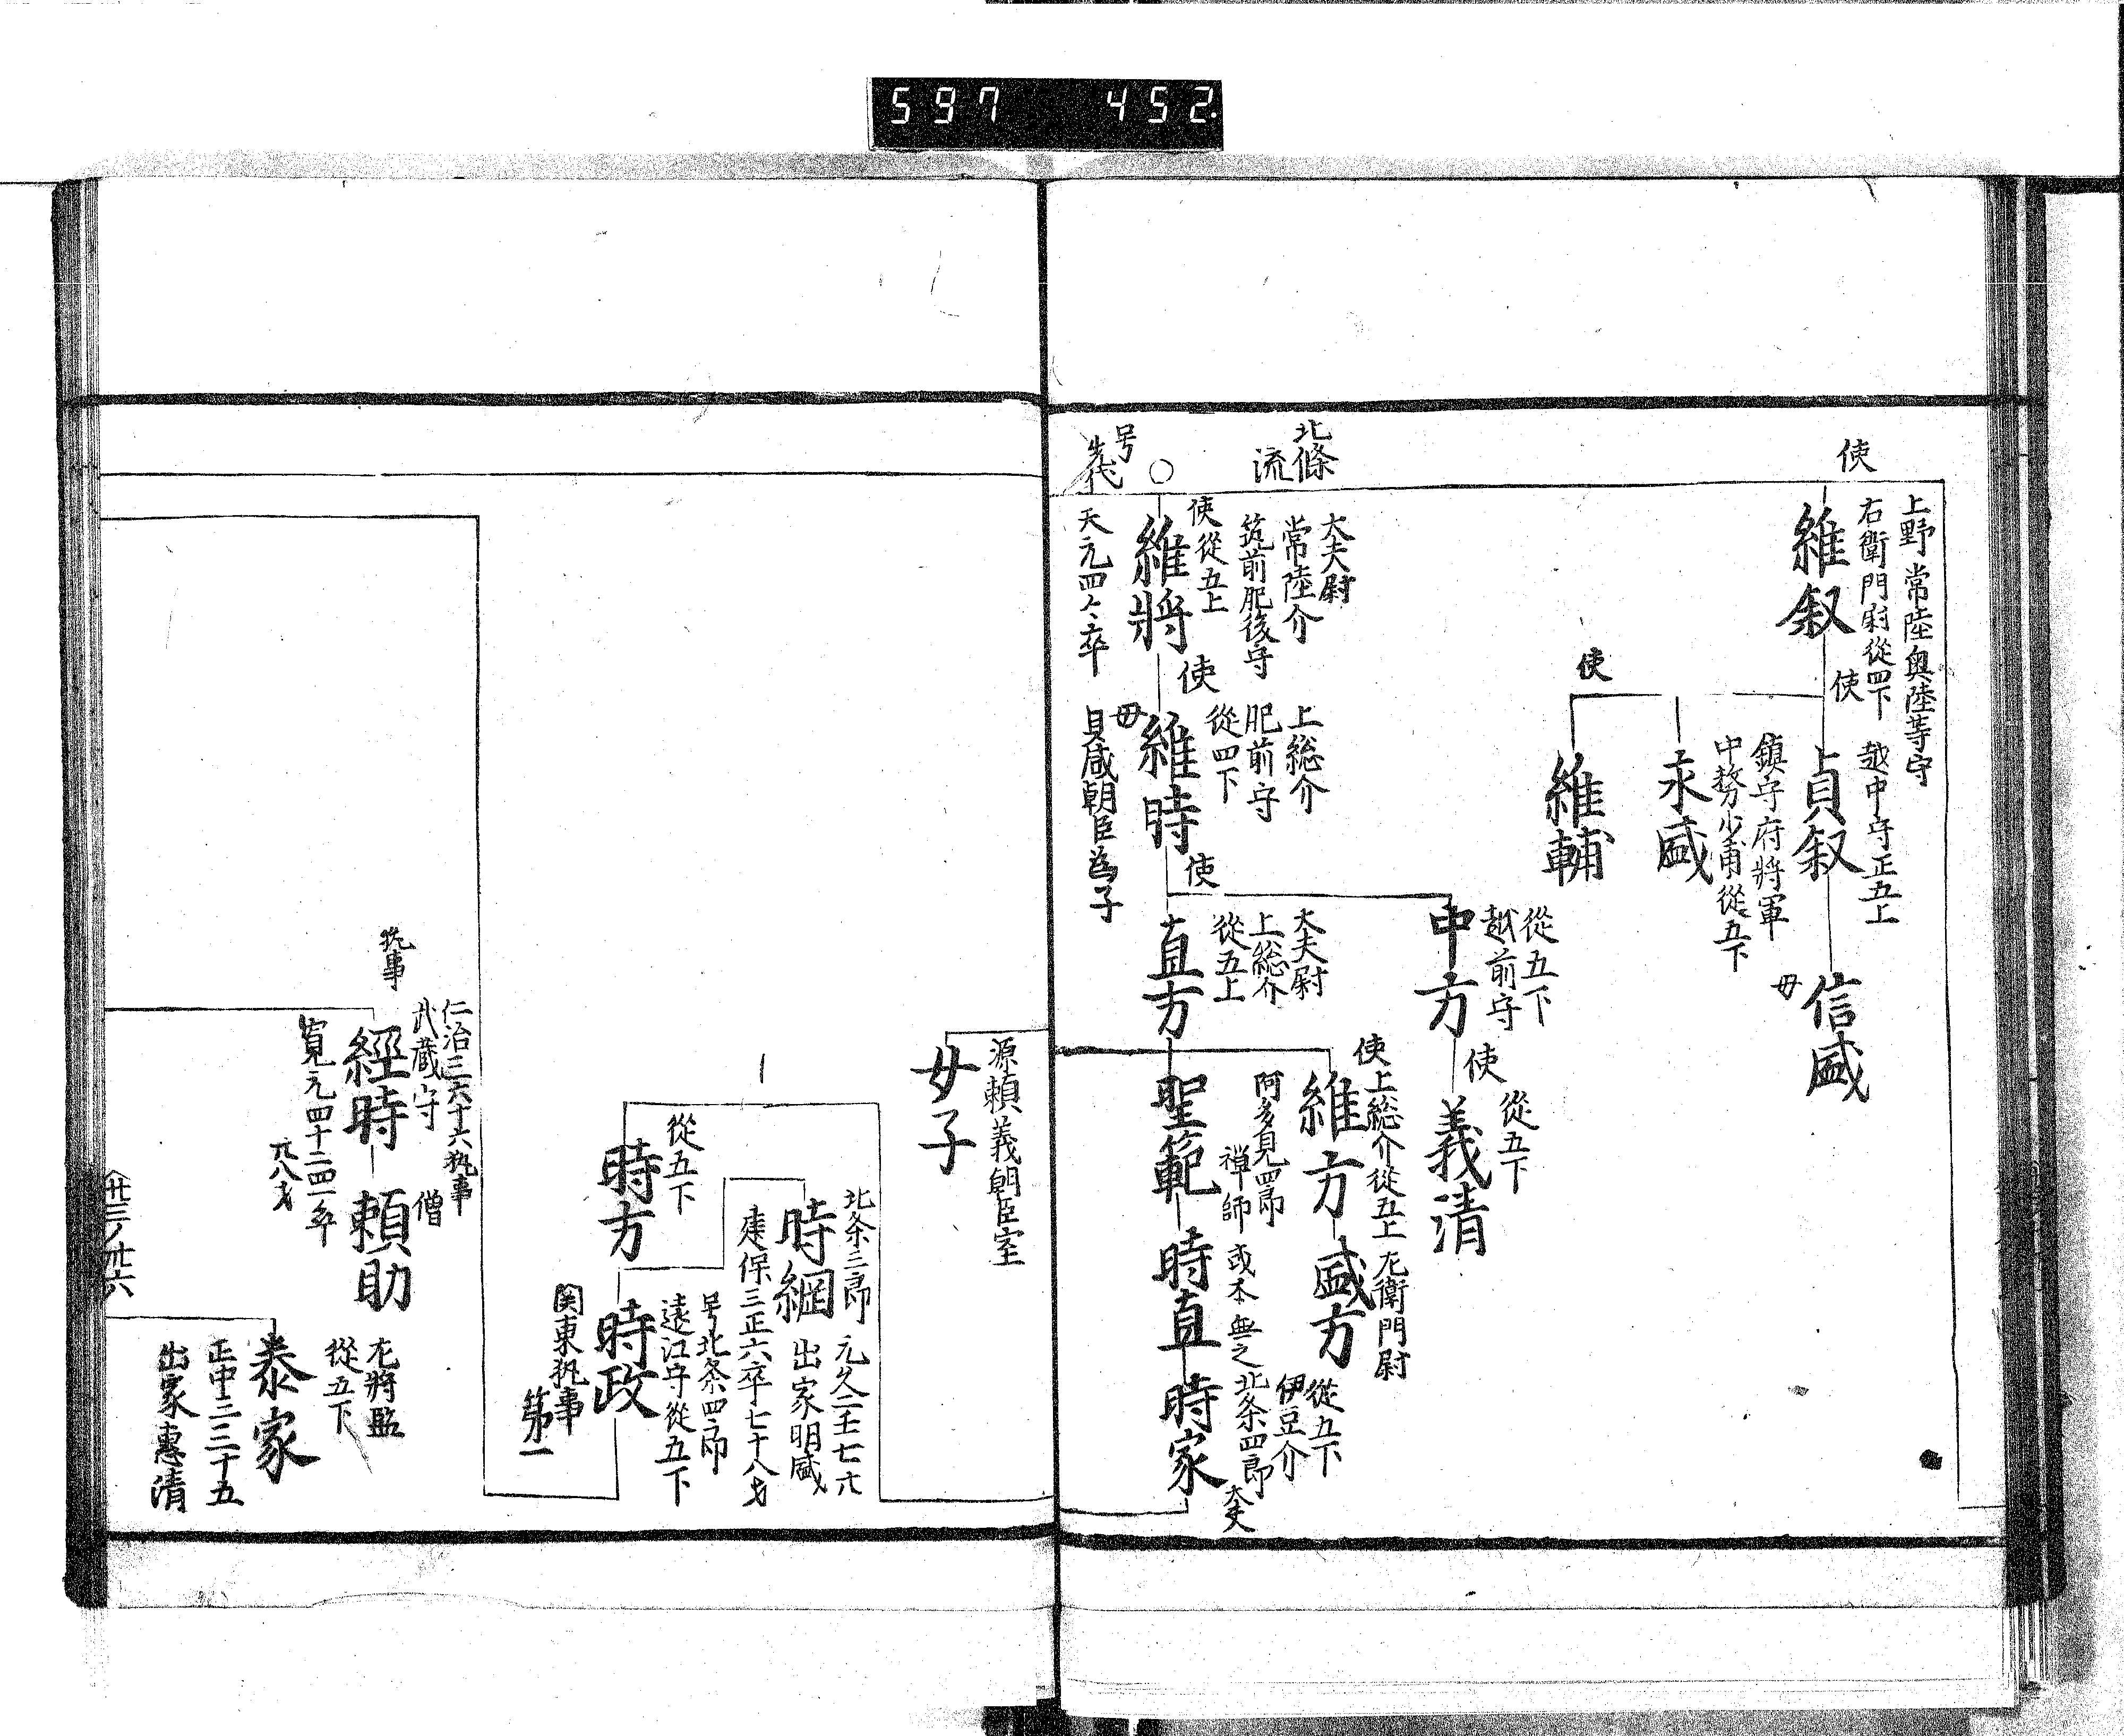 597 452
使
上野常陸奥陸等守
右衛門尉従四下
維叙
使
越中守正五上
貞叙
信盛
母
鎮守府将軍
中務少甫従五下
永盛
使
維輔
北條
流
号
先代
大夫尉
常陸介
筑前肥後守
使従五上
維将
天元四々卒
使
上総介
肥前守
従四下
維時
母
貞盛朝臣為子
使
従五下
越前守
中方
使
従五下
義清
大夫尉
上総介
従五上
直方
使上総介従五上
維方
阿多見四郎
禅師
聖範
左衛門尉
盛方
或本無之
時直
従五下
伊豆介
北条四郎
大夫
時家
源頼義朝臣室
女子
従五下
時方
北条三郎
時綱
元久二壬七六
出家明盛
建保三正六卒七十八才
号北条四郎
遠江守従五下
時政
関東執事
第一
執事
仁治三六十六執事
武蔵守
経時
寛元四十二四一卒
廿八才
僧
頼助
左将監
従五下
泰家
正中三三十五
出家恵清
廿三ノ卅六